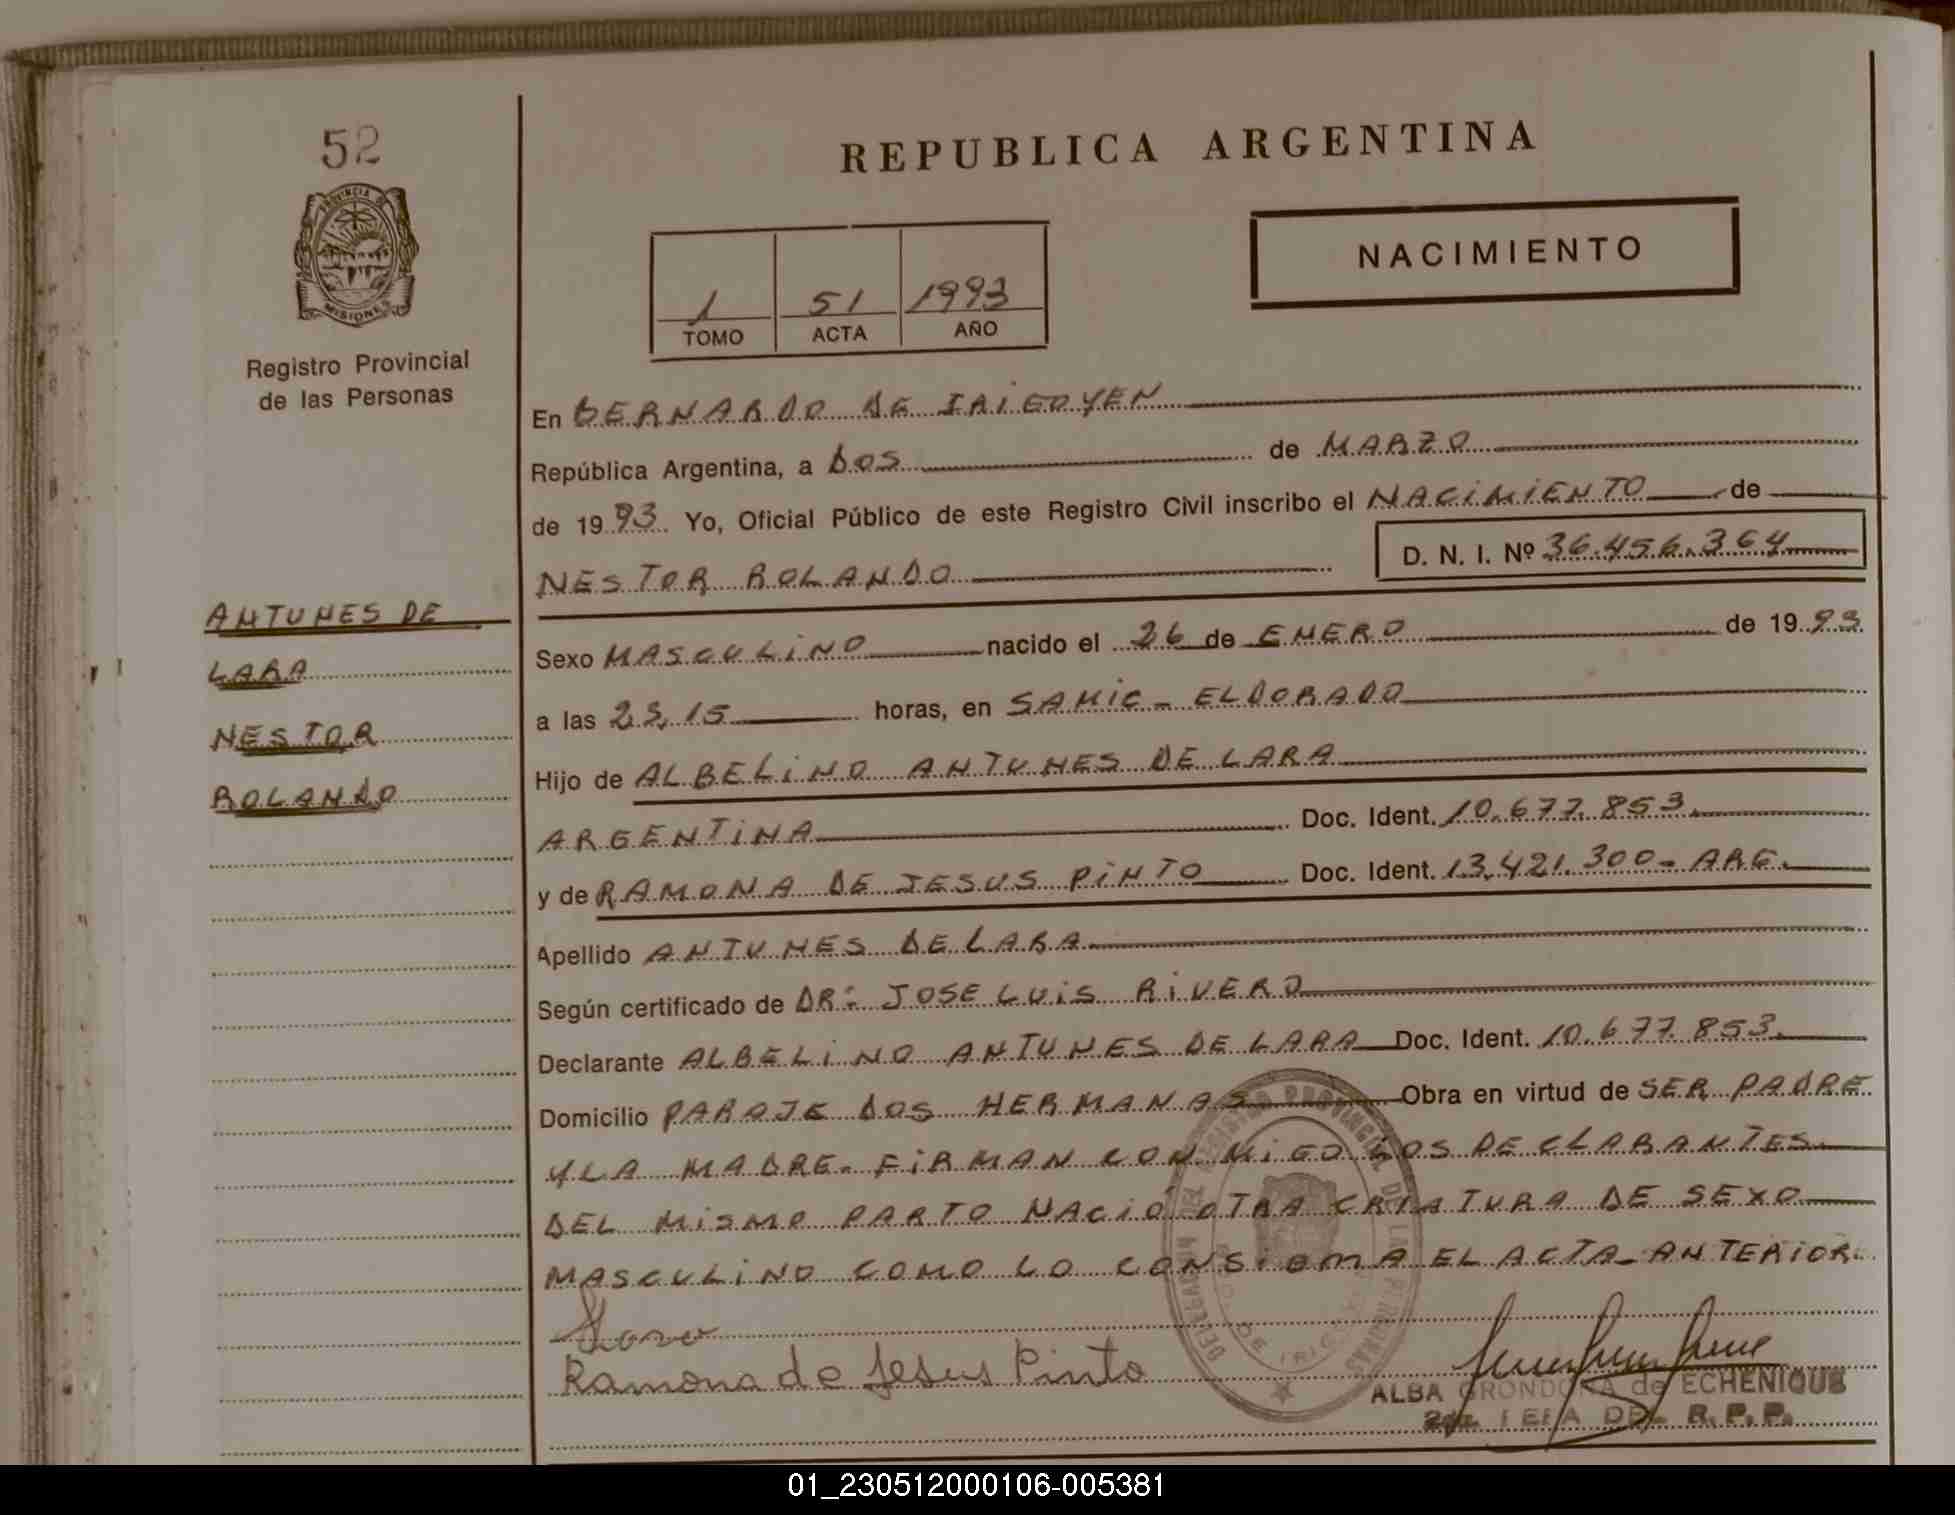 52
PROVINCIA DE
MISIONES
Registro Provincial
de las Personas
REPUBLICA ARGENTINA
NACIMIENTO
1 51 1993
TOMO ACTA AÑO
En BERNARDO DE IRIGOYEN
República Argentina, a DOS de MARZO
de 1993 Yo, Oficial Público de este Registro Civil inscribo el NACIMIENTO de
NESTOR ROLANDO D. N. I. Nº 36.456.364
ANTUNES DE
LARA
NESTOR
ROLANDO
Sexo MASCULINO nacido el 26 de ENERO de 1993
a las 23,15 horas, en SAMIC - ELDORADO
Hijo de ALBELINO ANTUNES DE LARA
ARGENTINA Doc. Ident. 10.677.853
y de RAMONA DE JESUS PINTO Doc. Ident. 13.421.300 - ARG.
Apellido ANTUNES DE LARA
Según certificado de DR: JOSE LUIS RIVERO
Declarante ALBELINO ANTUNES DE LARA Doc. Ident. 10.677.853
Domicilio PARAJE DOS HERMANAS Obra en virtud de SER PADRE
Y LA MADRE. FIRMAN CON MIGO LOS DECLARANTES
DEL MISMO PARTO NACIÓ OTRA CRIATURA DE SEXO
MASCULINO COMO LO CONSIGNA EL ACTA ANTERIOR.
DELEGACION DEL REGISTRO PROVINCIAL DE LAS PERSONAS
DE IRIGOYEN
Ramona de Jesus Pinto
ALBA GRONDONA de ECHENIQUE
JEFA DEL R.P.P.
01_230512000106-005381